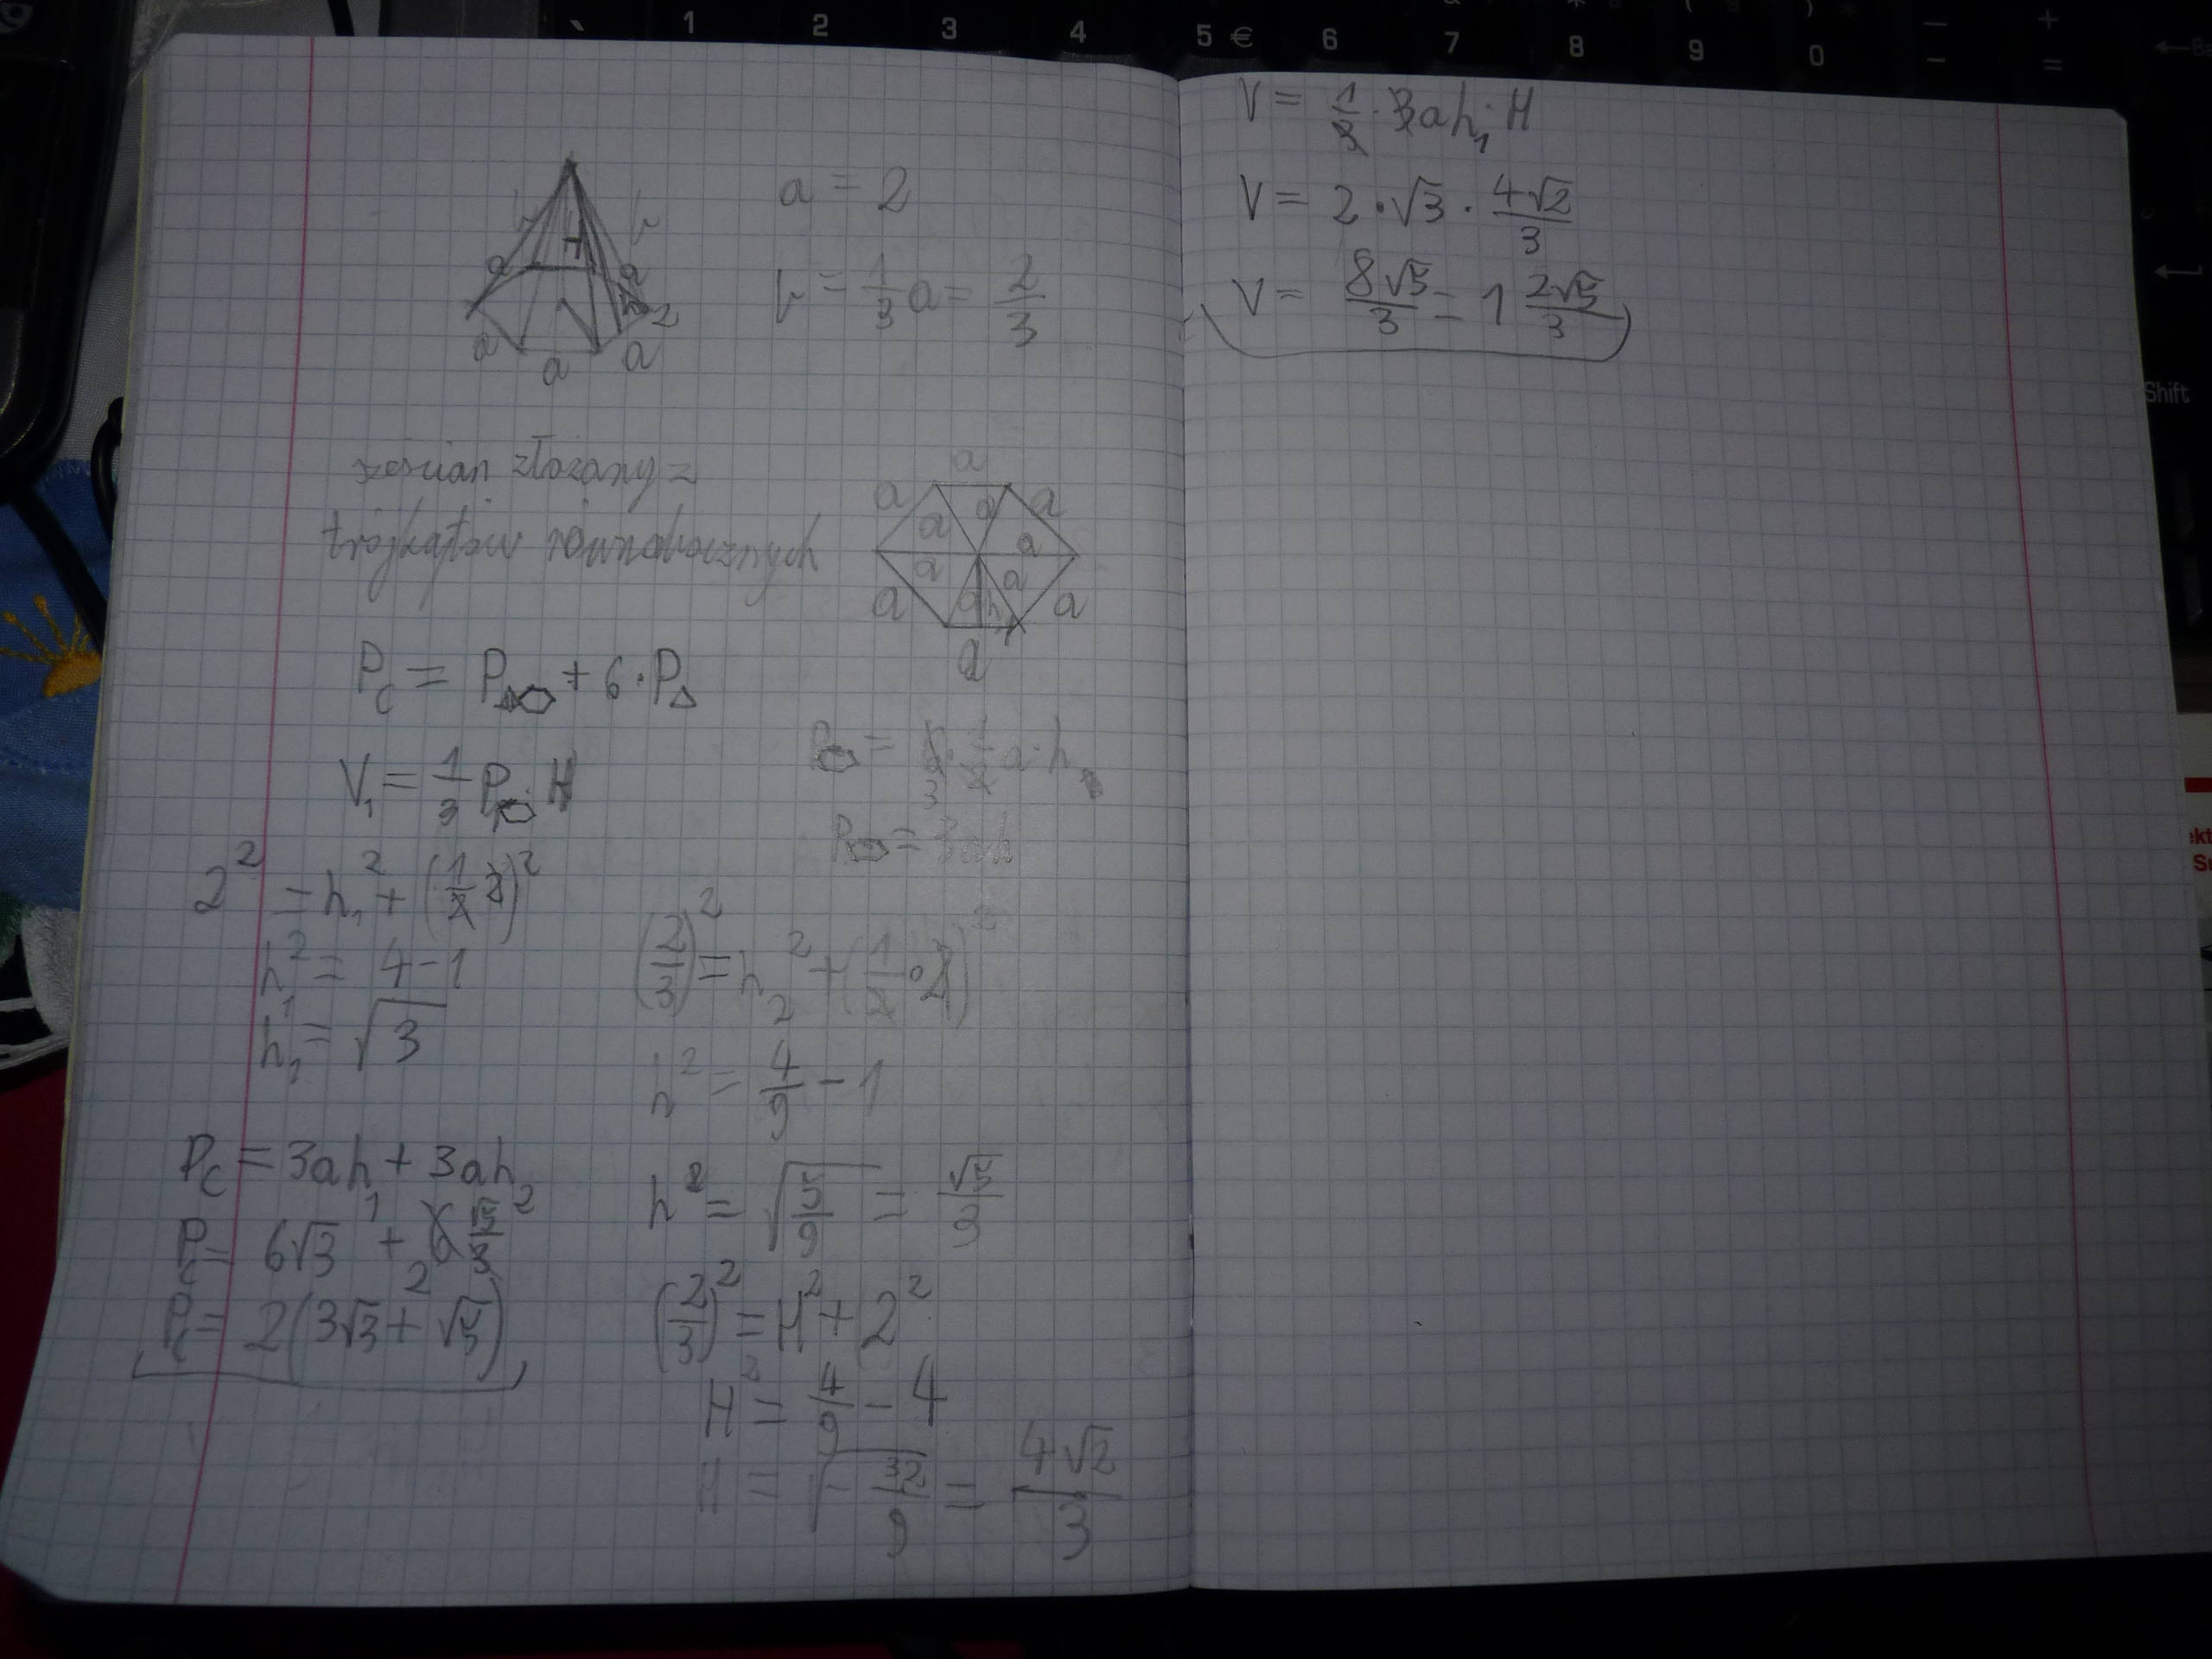 a = 2
b = 1/3 a = 2/3
H
a
a
a
a
a
2
sześcian złożony z
trójkątów równobocznych
a
a
a
a
a
a
a
a
a
a
a
h
a
P_C = P_⬡ + 6 · P_△
V₁ = 1/3 P_⬡ · H
P_⬡ = 6 · 1/2 a · h
3
P_⬡ = 3ah
2² = h₁² + (1/2 2)²
h₁² = 4 - 1
h₁ = √3
(2/3)² = h₂² + (1/2 · 2)²
h² = 4/9 - 1
h² = √(5/9) = √5/3
P_C = 3ah₁ + 3ah₂
P_C = 6√3 + 6 √5/3
2
P_C = 2(3√3 + √5)
(2/3)² = H² + 2²
H² = 4/9 - 4
H = √(-32/9) = 4√2/3
V = 1/3 · 3ah₁ · H
V = 2 · √3 · 4√2/3
V = 8√5/3 = 1 2√5/3
1
2
3
4
5 €
6
7
8
9
0
Shift